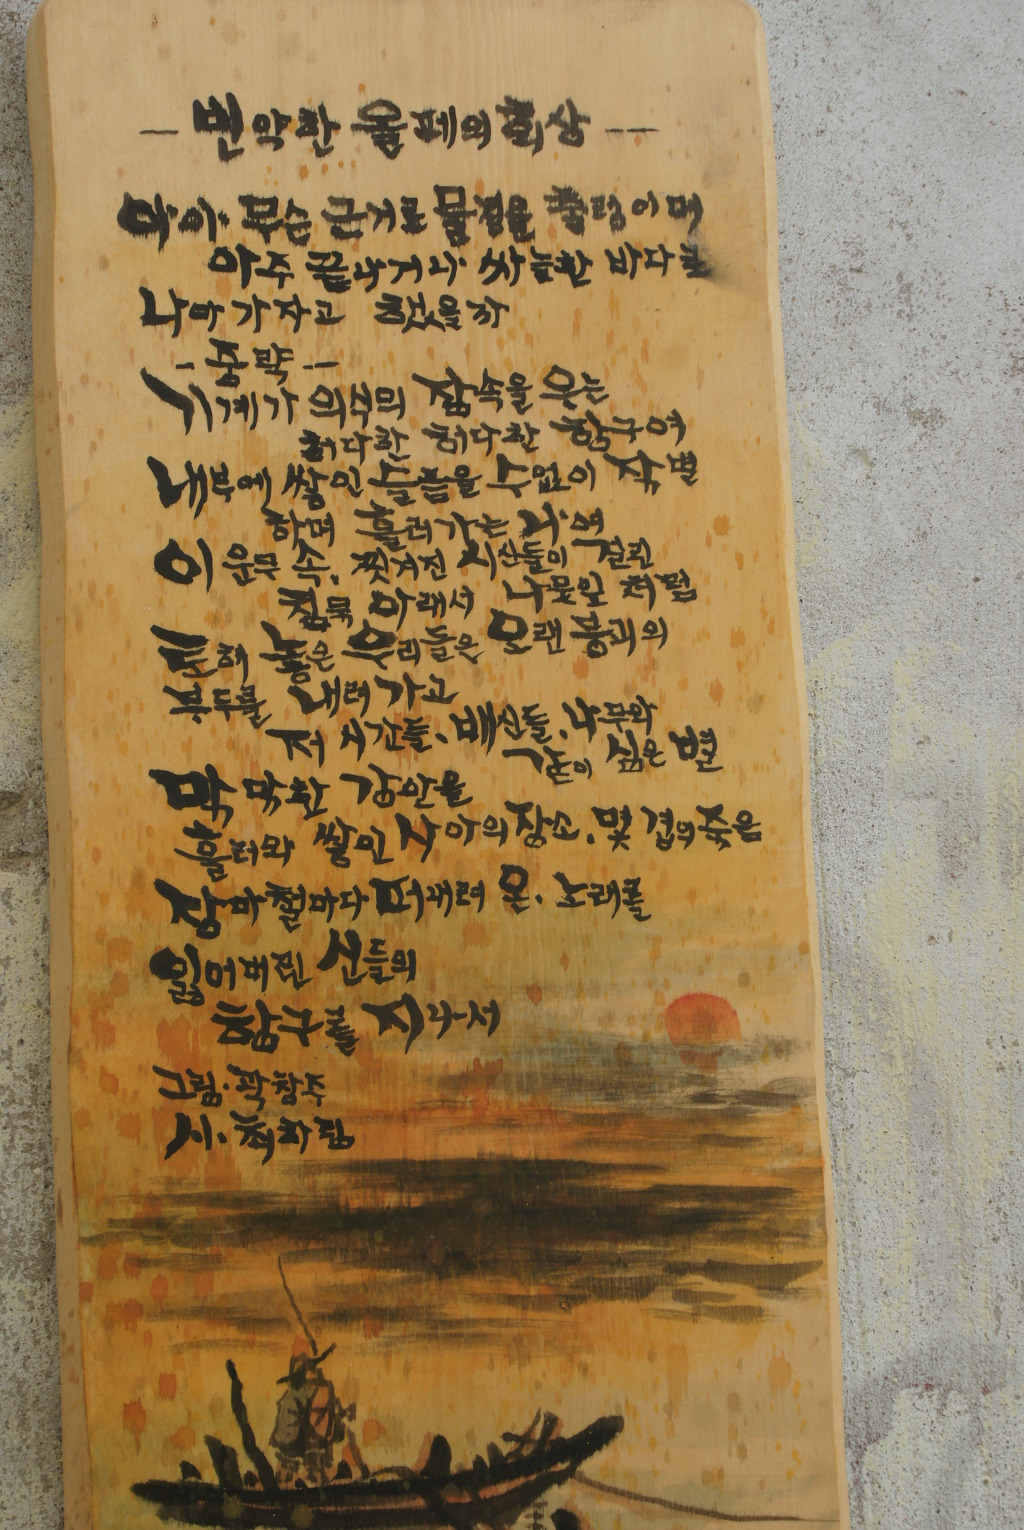 - 빈약한 올페의 회상 -
아아 무슨 근거로 물결을 출렁이며
아주 끝나거나 싸늘한 바다로
나아가자고 했을까
- 중략 -
기계가 의식의 잠속을 우는
허다한 허다한 항구여
내부에 쌓인 슬픔을 수없이 작별
하며 흘러가는 나여
이 운무 속, 찢겨진 시신들이 걸린
침묵 아래서 나뭇잎처럼
토해 놓은 우리들은 오랜 붕괴의
부두를 내려가고
저 시간들, 배신들, 나무와
같이 심은 별
막막한 강안을
흘러와 쌓인 사아의 장소. 몇 겹의 죽음
장마철마다 떠내려 온, 노래를
잃어버린 신들의
항구를 지나서
그림·곽창주
시·최하림